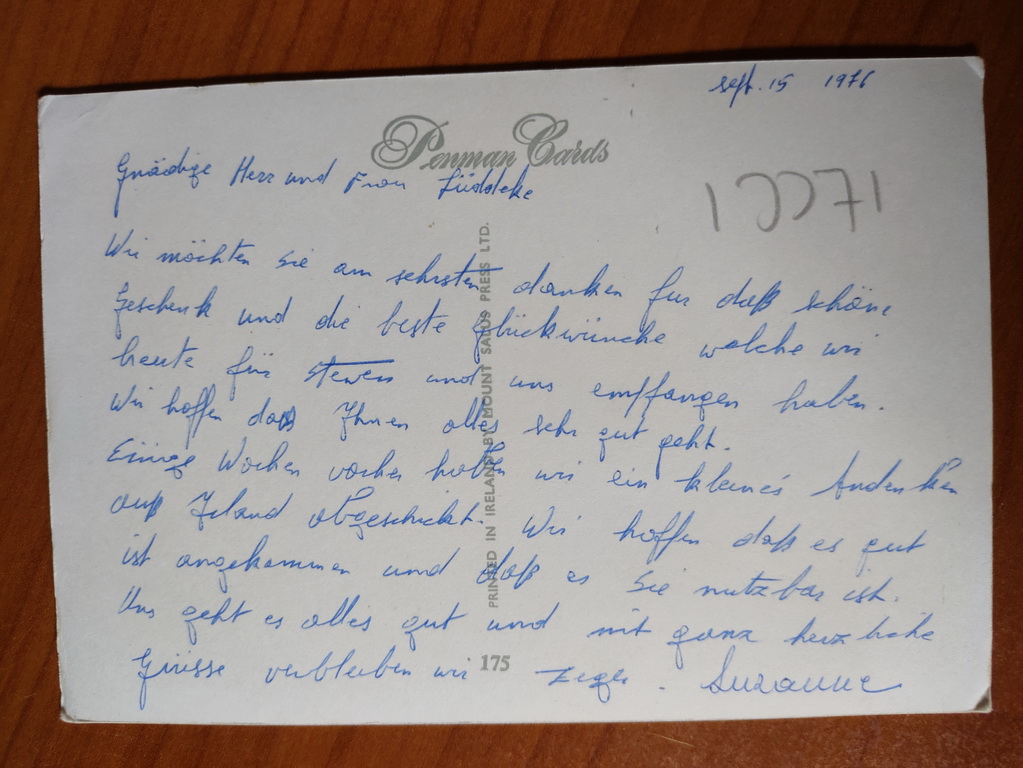 sept. 15 1976
Penman Cards
Gnädige Herr und Frau Lüddeke
Wir möchten Sie am sehrsten danken fur daß schöne
Geschenk und die beste Glückwünche welche wir
heute für Steven und uns empfangen haben.
Wir hoffen das Ihnen alles sehr gut geht.
Einige Wochen vorher haben wir ein kleines Andenken
auß Irland abgeschickt. Wir hoffen daß es gut
ist angekommen und daß es Sie nutzbar ist.
Uns geht es alles gut und mit ganz herzliche
Grüsse verbleiben wir Suzanne
PRINTED IN IRELAND BY MOUNT SALUS PRESS LTD.
175